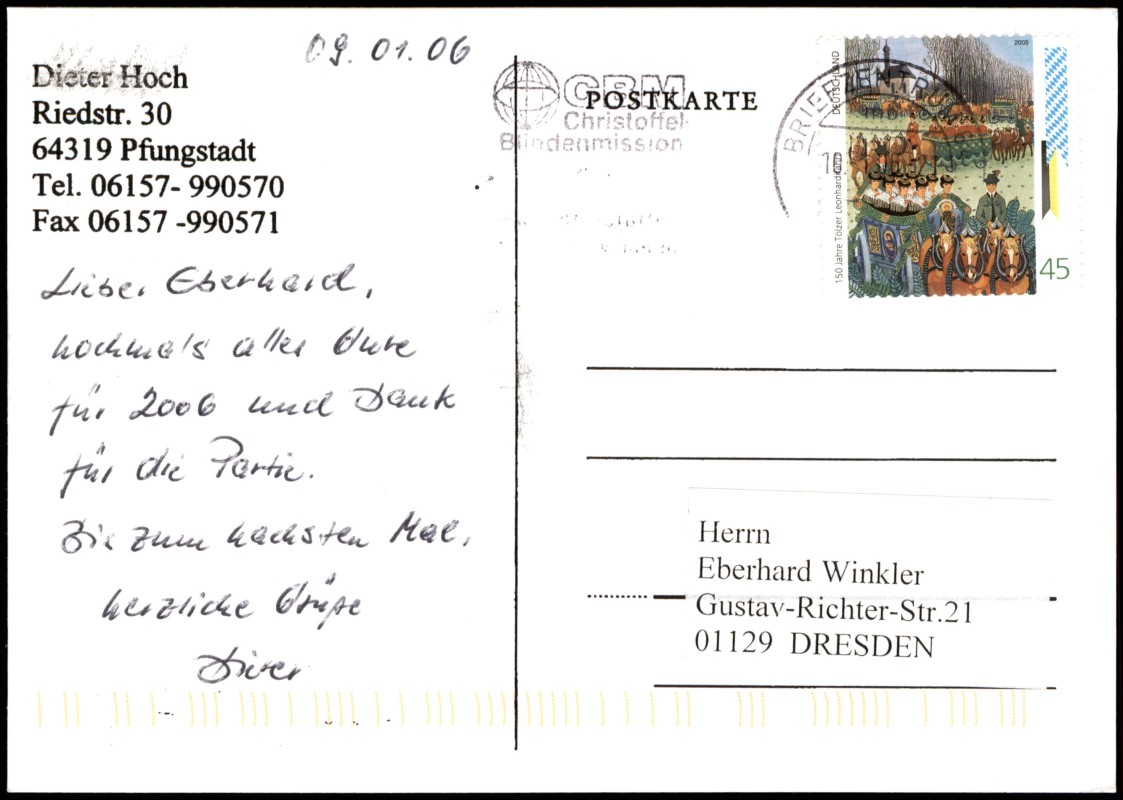 09.01.06
Dieter Hoch
Riedstr. 30
64319 Pfungstadt
Tel. 06157- 990570
Fax 06157 -990571
Lieber Eberhard,
nochmals alles Gute
für 2006 und Dank
für die Partie.
Bis zum nächsten Mal,
herzliche Grüße
Dieter
CBM
Christoffel-
Blindenmission
POSTKARTE
BRIEFZENTRUM
DEUTSCHLAND
2005
150 Jahre Tölzer Leonhardifahrt
45
Herrn
Eberhard Winkler
Gustav-Richter-Str.21
01129 DRESDEN